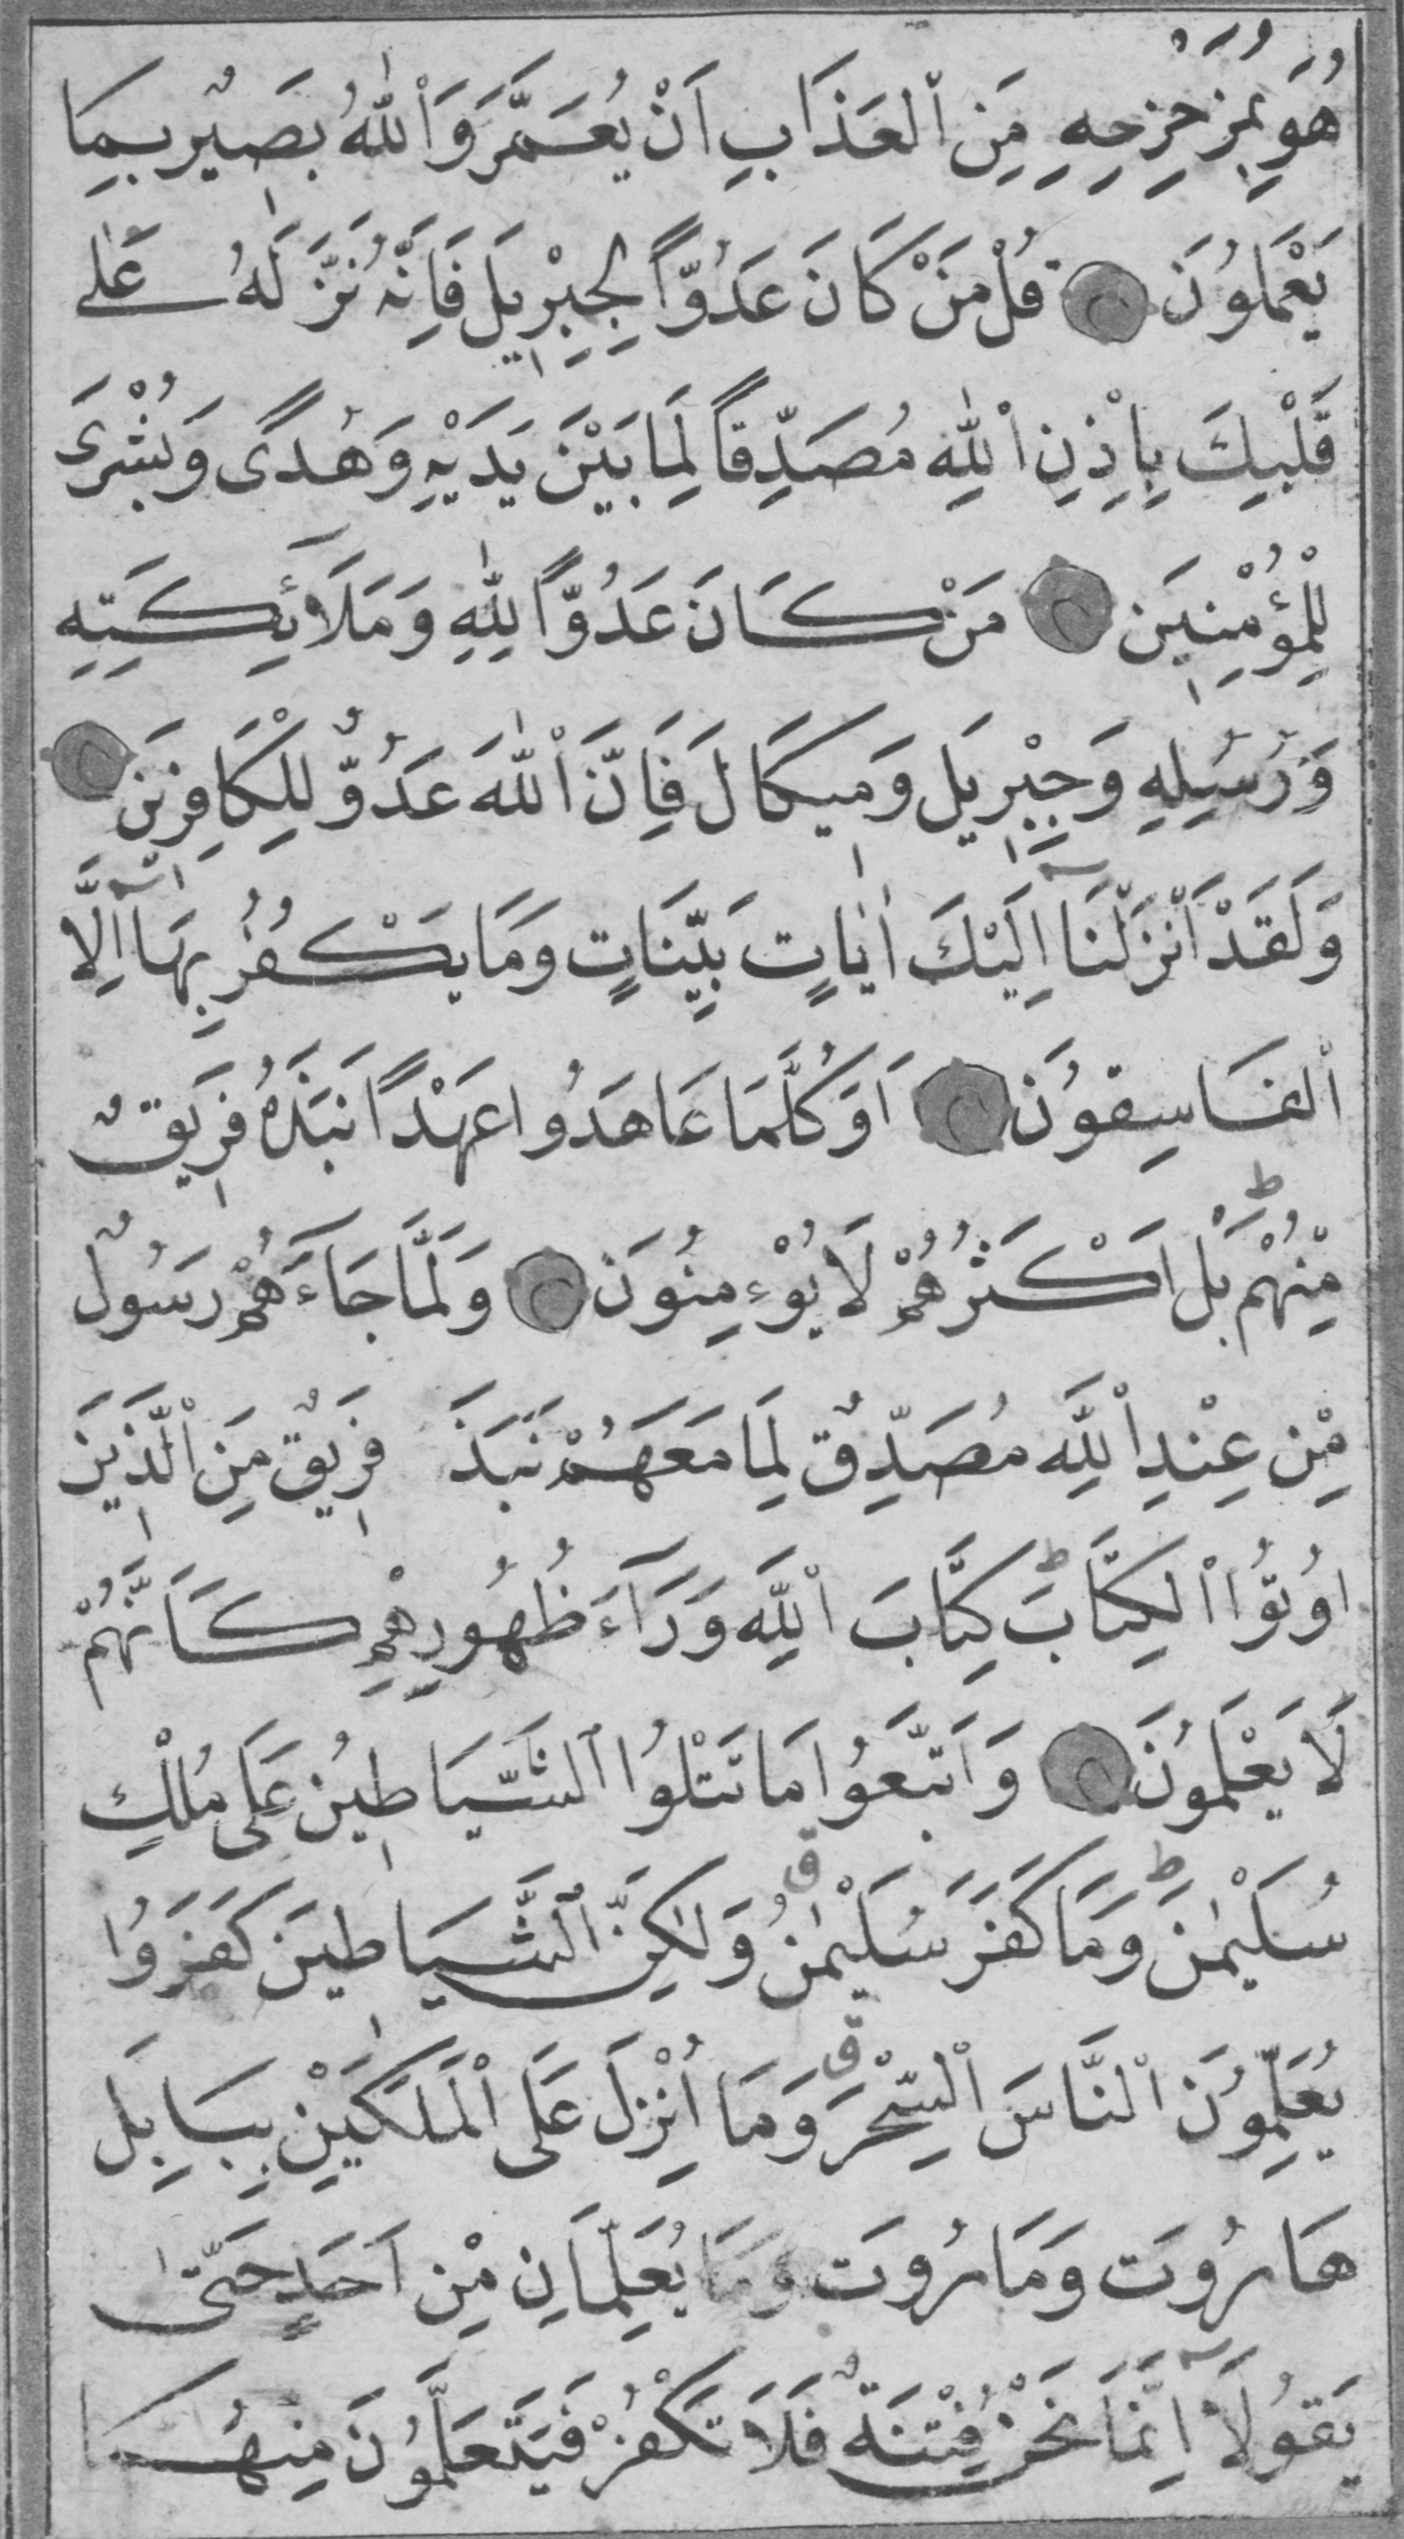 هُوَ بِمُزَحْزِحِهِ مِنَ ٱلْعَذَابِ اَنْ يُعَمَّرَ وَٱللّٰهُ بَصٖيرٌ بِمَا
يَعْمَلُونَ قُلْ مَنْ كَانَ عَدُوًّا لِجِبْرٖيلَ فَاِنَّهُ نَزَّلَهُ عَلٰى
قَلْبِكَ بِاِذْنِ ٱللّٰهِ مُصَدِّقاً لِمَا بَيْنَ يَدَيْهِ وَهُدًى وَبُشْرَى
لِلْمُؤْمِنٖينَ مَنْ كَانَ عَدُوًّا لِلّٰهِ وَمَلَآئِكَتِهِ
وَرُسُلِهِ وَجِبْرٖيلَ وَمٖيكَالَ فَاِنَّ ٱللّٰهَ عَدُوٌّ لِلْكَافِرٖينَ
وَلَقَدْ اَنْزَلْنَآ اِلَيْكَ اٰيَاتٍ بَيِّنَاتٍ وَمَا يَكْفُرُ بِهَآ اِلَّا
ٱلْفَاسِقُونَ اَوَكُلَّمَا عَاهَدُوا عَهْدًا نَبَذَهُ فَرٖيقٌ
مِنْهُمْ ط بَلْ اَكْثَرُهُمْ لَا يُؤْمِنُونَ وَلَمَّا جَآءَهُمْ رَسُولٌ
مِنْ عِنْدِ ٱللَّهِ مُصَدِّقٌ لِمَا مَعَهُمْ نَبَذَ فَرٖيقٌ مِنَ ٱلَّذٖينَ
اُوتُوا ٱلْكِتَابَ ط كِتَابَ ٱللَّهِ وَرَآءَ ظُهُورِهِمْ كَاَنَّهُمْ
لَا يَعْلَمُونَ وَٱتَّبَعُوا مَا تَتْلُوا ٱلشَّيَاطٖينُ عَلَى مُلْكِ
سُلَيْمٰنَ ط وَمَا كَفَرَ سُلَيْمٰنُ ق وَلٰكِنَّ ٱلشَّيَاطٖينَ كَفَرُوا
يُعَلِّمُونَ ٱلنَّاسَ ٱلسِّحْرَ ق وَمَا اُنْزِلَ عَلَى ٱلْمَلَكَيْنِ بِبَابِلَ
هَارُوتَ وَمَارُوتَ وَمَا يُعَلِّمَانِ مِنْ اَحَدٍ حَتّٰى
يَقُولَآ اِنَّمَا نَحْنُ فِتْنَةٌ فَلَا تَكْفُرْ فَيَتَعَلَّمُونَ مِنْهُمَا